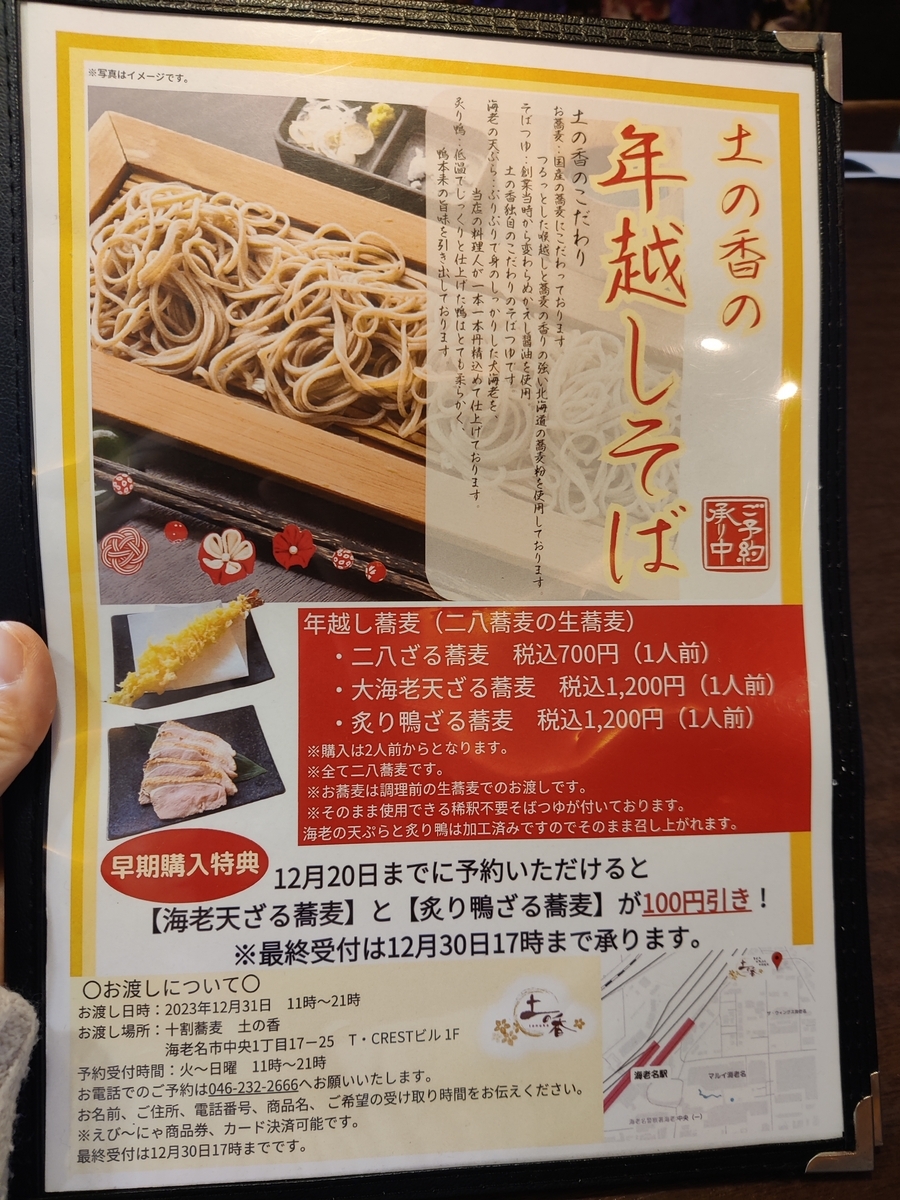 ※写真はイメージです。
土の香の
年越しそば
ご予約
承り中
土の香のこだわり
お蕎麦:国産の蕎麦にこだわっております
つるっとした喉越しと蕎麦の香りの強い北海道の蕎麦粉を使用しております。
そばつゆ:創業当時から変わらぬかえし醤油を使用
土の香独自のこだわりのそばつゆです。
海老の天ぷら:ぷりぷりで身のしっかりした大海老を、
当店の料理人が一本一本丹精込めて仕上げております。
炙り鴨:低温でじっくりと仕上げた鴨はとても柔らかく、
鴨本来の旨味を引き出しております。
年越し蕎麦(二八蕎麦の生蕎麦)
・二八ざる蕎麦 税込700円(1人前)
・大海老天ざる蕎麦 税込1,200円(1人前)
・炙り鴨ざる蕎麦 税込1,200円(1人前)
※購入は2人前からとなります。
※全て二八蕎麦です。
※お蕎麦は調理前の生蕎麦でのお渡しです。
※そのまま使用できる稀釈不要そばつゆが付いております。
海老の天ぷらと炙り鴨は加工済みですのでそのまま召し上がれます。
早期購入特典
12月20日までに予約いただけると
【海老天ざる蕎麦】と【炙り鴨ざる蕎麦】が100円引き!
※最終受付は12月30日17時まで承ります。
〇お渡しについて〇
お渡し日時:2023年12月31日 11時〜21時
お渡し場所:十割蕎麦 土の香
海老名市中央1丁目17−25 T・CRESTビル 1F
予約受付時間:火〜日曜 11時〜21時
お電話でのご予約は046-232-2666へお願いいたします。
お名前、ご住所、電話番号、商品名、ご希望の受け取り時間をお伝えください。
※えび〜にゃ商品券、カード決済可能です。
最終受付は12月30日17時までです。
土の香
土の香
海老名駅
マルイ海老名